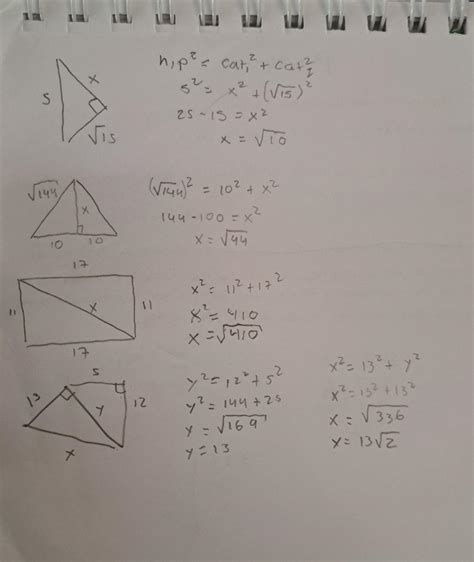 hip² = cat₁² + cat₂²
5² = x² + (√15)²
25 - 15 = x²
x = √10
5
x
√15
(√144)² = 10² + x²
144 - 100 = x²
x = √44
√144
x
10 10
17
11
x
11
17
x² = 11² + 17²
x² = 410
x = √410
5
13
y
12
x
y² = 12² + 5²
y² = 144 + 25
y = √169
y = 13
x² = 13² + y²
x² = 13² + 13²
x = √336
x = 13√2